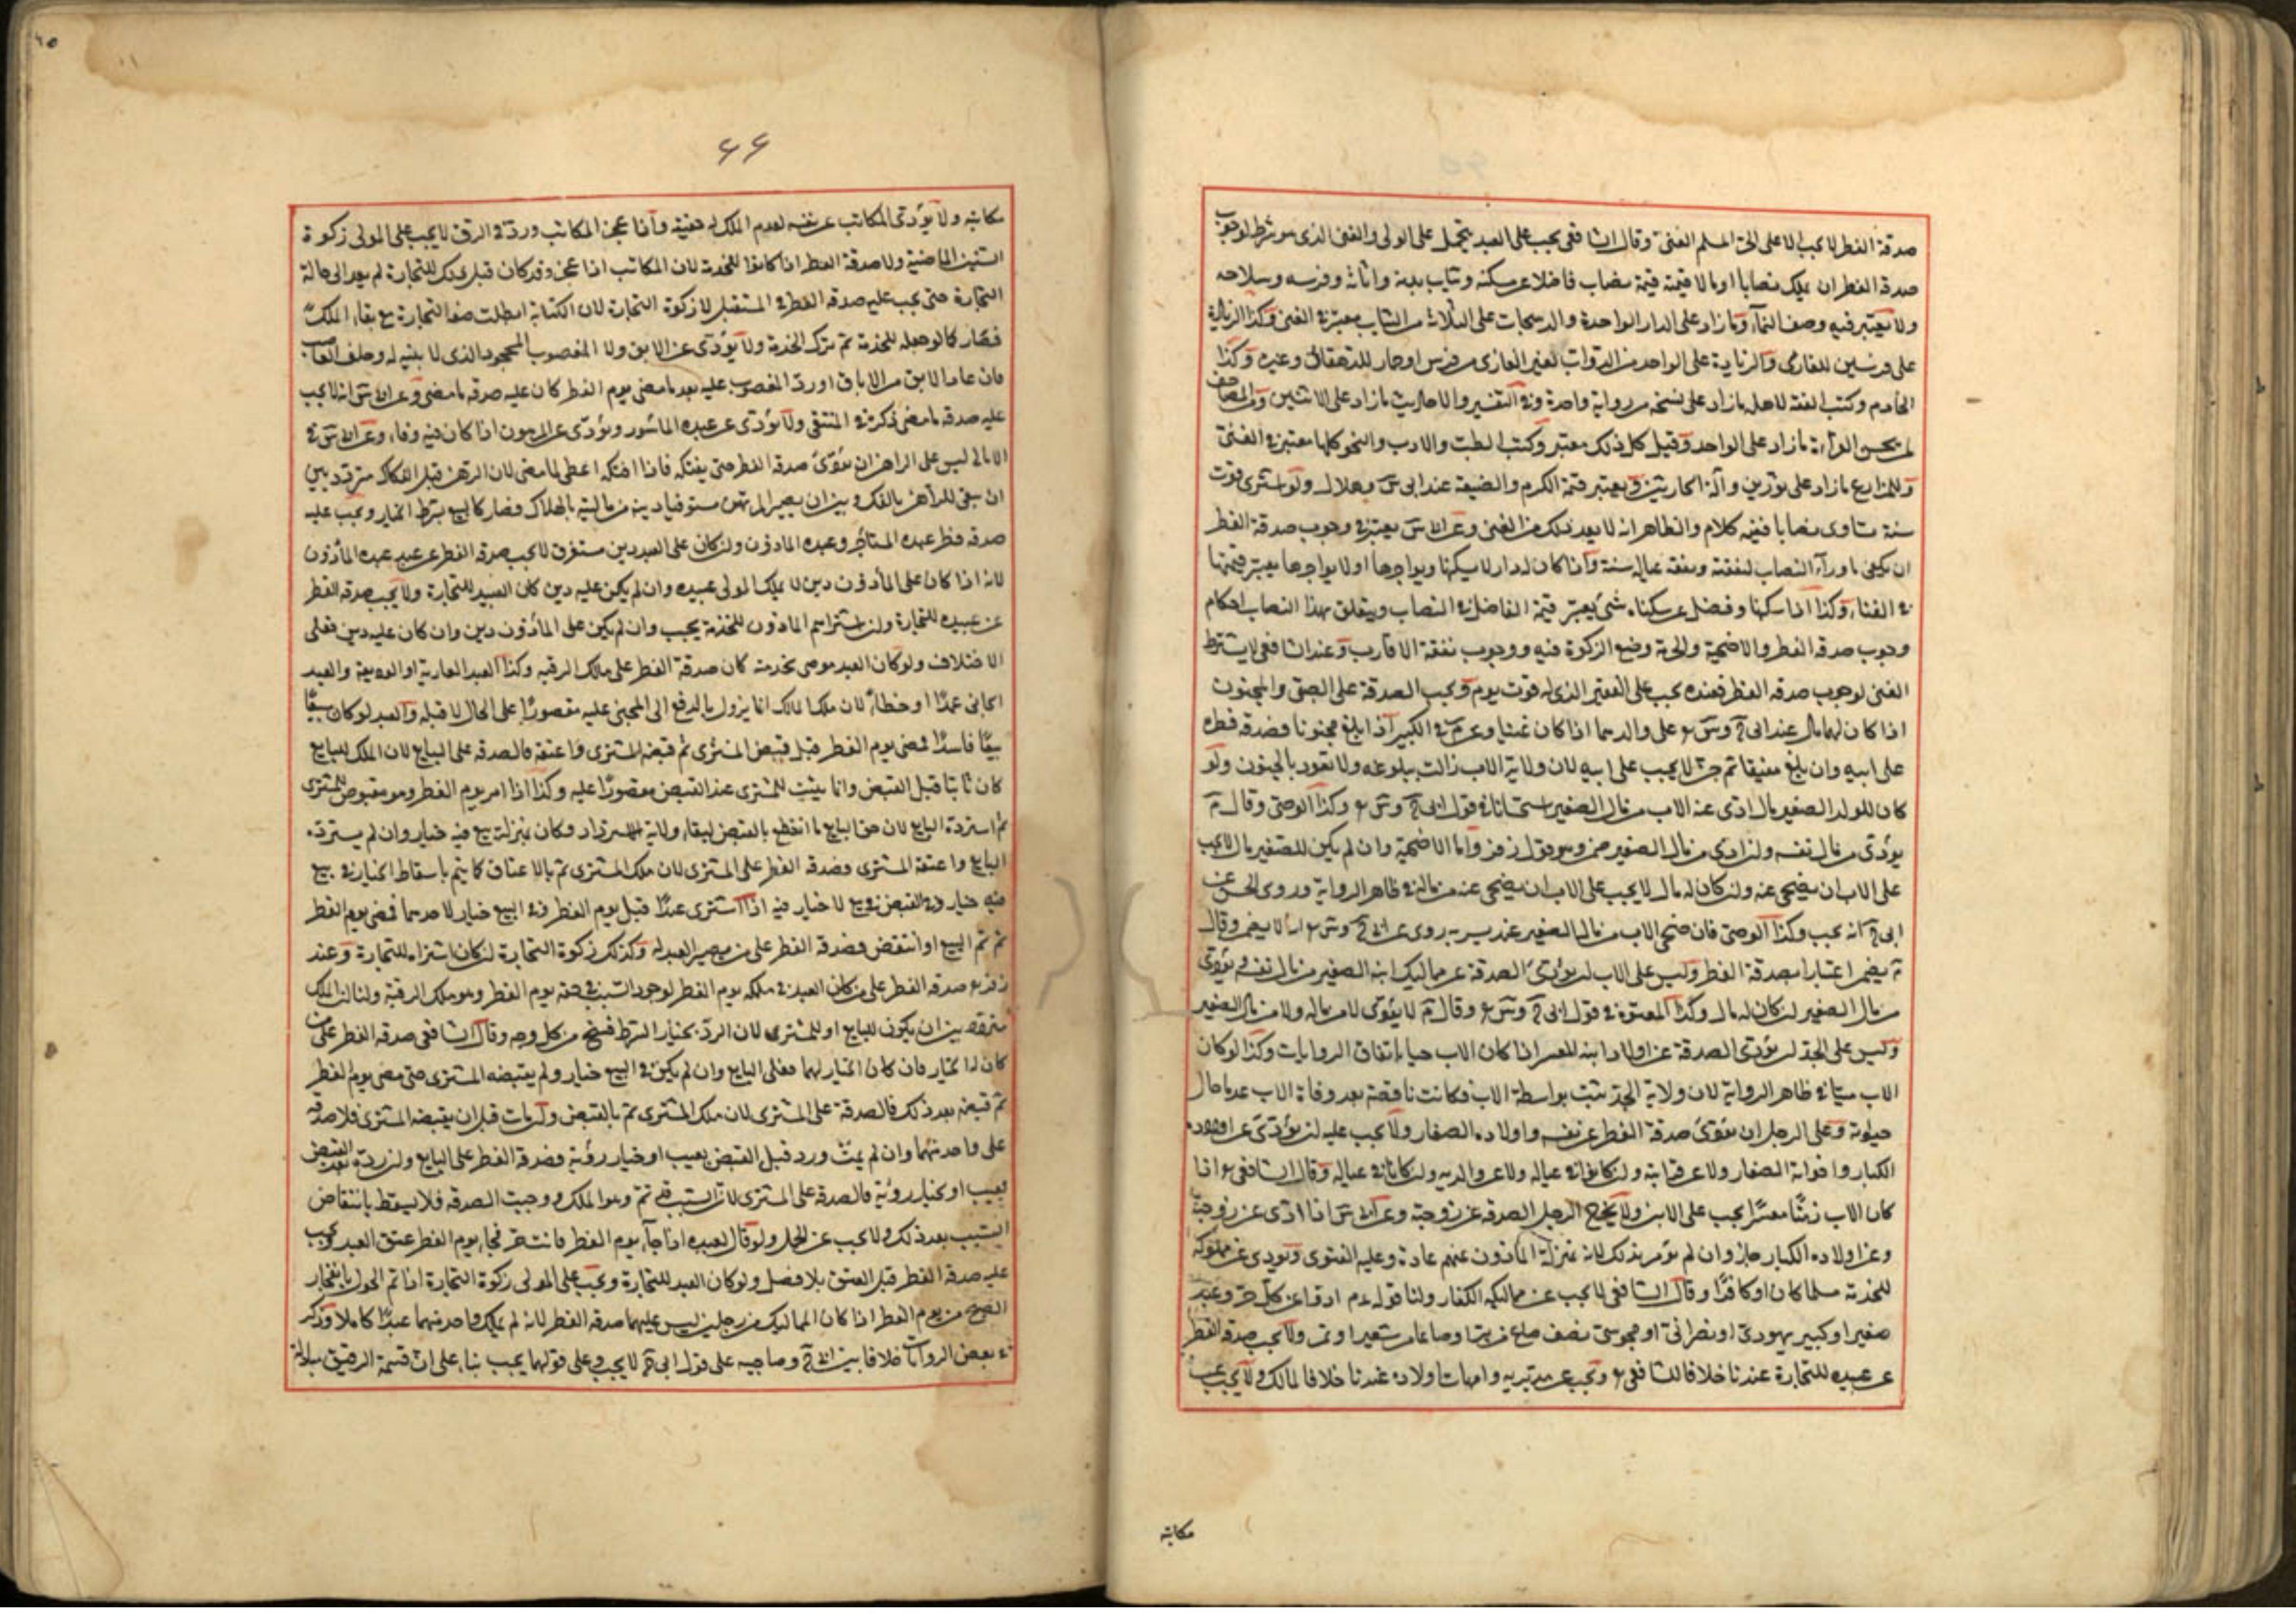 صدقة الفطر لا تجب الا على الحر المسلم الغني وقال الشافعي يجب على العبد يتحمل على المولى والغنى الذى هو شرط لوجوب
صدقة الفطر ان يملك نصابا او مالا قيمته قيمة نصاب فاضلا عن مسكنه وثياب بدنه واثاثه وفرسه وسلاحه
ولا يعتبر فيه وصف النماء وما زاد على الدار الواحدة والدستجات على الثلاث من الثياب معتبر في الغنى وكذا الزيادة
على فرسين للغازى والزيادة على الواحد من الدواب لغير الغازى من فرس او حمار للدهقان وغيره وكذا
الخادم وكتب الفقه لاهله ما زاد على نسخة من رواية واحدة وفي التفسير والاحاديث ما زاد على الاثنين والمصاحف
لمن يحسن القرآة ما زاد على الواحد وقيل كل ذلك معتبر وكتب الطب والادب والنحو كلها معتبر في الغنى
وللمزارع ما زاد على ثورين وآلة الحارثين ويعتبر قيمة الكرم والضيعة عند ابى س وهلال ولو اشترى قوت
سنة تساوى نصابا ففيه كلام والظاهر انه لا يعد ذلك من الغنى وعن س يعتبر في وجوب صدقة الفطر
ان يكفى ما وراء النصاب لنفقته ونفقة عياله سنة واذا كان له دار لا يسكنها ويواجرها او لا يواجرها يعتبر قيمتها
في الغناء وكذا اذا سكنها وفضل عن سكناه شئ يعتبر قيمة الفاضل في النصاب ويتعلق بهذا النصاب احكام
وجوب صدقة الفطر والاضحية وحرمة وضع الزكوة فيه ووجوب نفقة الاقارب وعند الشافعي لا يشترط
الغنى لوجوب صدقة الفطر فعنده يجب على الفقير الذى له قوت يوم ويجب الصدقة على الصبى والمجنون
اذا كان لهما مال عند ابى ح وس ع على والدهما اذا كان غنيا وعن م في الكبير اذا بلغ مجنونا فصدقة فطره
على ابيه وان بلغ مفيقا ثم جن لا يجب على ابيه لان ولاية الاب زالت ببلوغه ولا تعود بالجنون ولو
كان للولد الصغير مال ادى عنه الاب من مال الصغير استحسانا في قول ابى ح وس ع وكذا الوصى وقال م
يؤدى من مال نفسه ولو ادى من مال الصغير ضمن وهو قول زفر واما الاضحية وان لم يكن للصغير مال لا يجب
على الاب ان يضحى عنه ولو كان له مال لا يجب على الاب ان يضحى عنه من ماله في ظاهر الرواية وروى الحسن عن
ابى ح انه يجب وكذا الوصى فان ضحى الاب من مال الصغير عند روى عن ح وس ع انه لا يضمن وقال
م يضمن اعتبارا بصدقة الفطر وليس على الاب ان يؤدى الصدقة عن مماليك ابنه الصغير من مال نفسه ويؤدى
من مال الصغير ان كان له مال وكذا المعتوه في قول ابى ح وس ع وقال م لا يؤدى لا من ماله ولا من مال الصغير
وليس على الجد ان يؤدى الصدقة عن اولاد ابنه المعسر اذا كان الاب حيا باتفاق الروايات وكذا لو كان
الاب ميتا في ظاهر الرواية لان ولاية الجد تثبت بواسطة الاب فكانت ناقصة بعد وفاة الاب عندنا حال
حيوته وعلى الرجل ان يؤدى صدقة الفطر عن نفسه واولاده الصغار ولا يجب عليه ان يؤدى عن اولاده
الكبار واخوانه الصغار ولا عن قرابته وان كانوا في عياله ولا عن والديه وان كانا في عياله وقال الشافعي ع اذا
كان الاب زمنا معسرا يجب على الابن ولا يخرج الرجل الصدقة عن زوجته وعن س اذا ادى عن زوجته
وعن اولاده الكبار جاز وان لم يؤمر بذلك لانه بمنزلة المأذون عنهم عادة وعليه الفتوى ويؤدى عن مملوكه
للخدمة مسلما كان او كافرا وقال الشافعي لا يجب عن مماليكه الكفار ولنا قوله عم ادوا عن كل حر وعبد
صغير او كبير يهودى او نصرانى او مجوسى نصف صاع من بر او صاعا من شعير او تمر ولا يجب صدقة الفطر
عن عبيده للتجارة عندنا خلافا للشافعي ع ويجب عن مدبريه وامهات اولاده عندنا خلافا لمالك ولا يجب عن
مكاتبه
٦٦
مكاتبه ولا يؤدى المكاتب عن نفسه لعدم الملك له حقيقة واذا عجز المكاتب ورد في الرق لا يجب على المولى زكوة
السنين الماضية ولا صدقة الفطر اذا كانوا للخدمة لان المكاتب اذا عجز وقد كان قبل ذلك للتجارة لم يعد الى حالة
التجارة حتى يجب عليه صدقة الفطر في المستقبل لا زكوة التجارة لان الكتابة ابطلت صفة التجارة مع بقاء الملك
فصار كما لو جعله للخدمة ثم ترك الخدمة ولا يؤدى عن الابق ولا المغصوب المجحود الذى لا بينة له وحلف الغاصب
فان عاد الابق من الاباق او رد المغصوب عليه بعد ما مضى يوم الفطر كان عليه صدقة ما مضى وعن س انه لا يجب
عليه صدقة ما مضى ذكره في المنتقى ولا يؤدى عن عبده المأسور ويؤدى عن المرهون اذا كان فيه وفاء وعن س في
الامالى ليس على الراهن ان يؤدى صدقة الفطر حتى يفتكه فاذا افتكه اعطى لما مضى لان الرهن قبل الفكاك متردد بين
ان يبقى للراهن بالفك وبين ان يصير المرتهن مستوفيا دينه من ماليته بالهلاك فصار كالبيع بشرط الخيار ويجب عليه
صدقة فطر عبده المستأجر وعبده المأذون وان كان على العبد دين مستغرق لا يجب صدقة الفطر عن عبيد عبده المأذون
لانه اذا كان على المأذون دين لا يملك المولى عبيده وان لم يكن عليه دين كان العبيد للتجارة ولا يجب صدقة الفطر
عن عبيده للتجارة وان اشتراهم المأذون للخدمة يجب وان لم يكن على المأذون دين وان كان عليه دين فعلى
الاختلاف ولو كان العبد موصى بخدمته كان صدقة الفطر على مالك الرقبة وكذا العبد العارية او الوديعة والعبد
الجانى عمدا او خطأ لان ملك المالك انما يزول بالدفع الى المجنى عليه مقصورا على الحال لا قبله والعبد لو كان مبيعا
بيعا فاسدا فمضى يوم الفطر قبل قبض المشترى ثم قبضه المشترى واعتقه فالصدقة على البايع لان الملك للبايع
كان ثابتا قبل القبض وانما يثبت للمشترى عند القبض مقصورا عليه وكذا اذا مر يوم الفطر وهو مقبوض للمشترى
ثم استرده البايع لان حق البايع ما انقطع بالقبض لبقاء ولاية الاسترداد فكان بمنزلة بيع فيه خيار وان لم يسترده
البايع واعتقه المشترى فصدقة الفطر على المشترى لان ملك المشترى تم بالاعتاق كما يتم باسقاط الخيار في بيع
فيه خيار وبالقبض في بيع لا خيار فيه اذا اشترى عبدا قبل يوم الفطر وفي البيع خيار لاحدهما فمضى يوم الفطر
ثم تم البيع او انتقض فصدقة الفطر على من يصير العبد له وكذلك زكوة التجارة ان كان اشتراه للتجارة وعند
زفر ع صدقة الفطر على من كان العبد في ملكه يوم الفطر لوجود السبب في حقه يوم الفطر وهو ملك الرقبة ولنا ان الملك
متوقف بين ان يكون للبايع او للمشترى لان الرد بخيار الشرط فسخ من كل وجه وقال الشافعي صدقة الفطر على من
كان له الخيار فان كان الخيار لهما فعلى البايع وان لم يكن في البيع خيار ولم يقبضه المشترى حتى مضى يوم الفطر
ثم قبضه بعد ذلك فالصدقة على المشترى لان ملك المشترى تم بالقبض ولو مات قبل ان يقبضه المشترى فلا صدقة
على واحد منهما وان لم يمت ورد قبل القبض بعيب او خيار رؤية فصدقة الفطر على البايع وان رده بعد القبض
بعيب او بخيار رؤية فالصدقة على المشترى لان السبب قد تم وهو الملك ووجبت الصدقة فلا يسقط بانتقاض
السبب بعد ذلك ولا يجب عن الحمل ولو قال لعبده اذا جاء يوم الفطر فانت حر فجاء يوم الفطر عتق العبد ويجب
عليه صدقة الفطر قبل العتق بلا فصل ولو كان العبد للتجارة ويجب على المولى زكوة التجارة اذا تم الحول بانفجار
الصبح من يوم الفطر اذا كان المماليك من رجلين ليس عليهما صدقة الفطر لانه لم يملك واحد منهما عبدا كاملا وذكر
في بعض الروايات خلافا بين ح وصاحبيه على قول ابى ح لا يجب وعلى قولهما يجب بناء على ان قسمة الرقيق